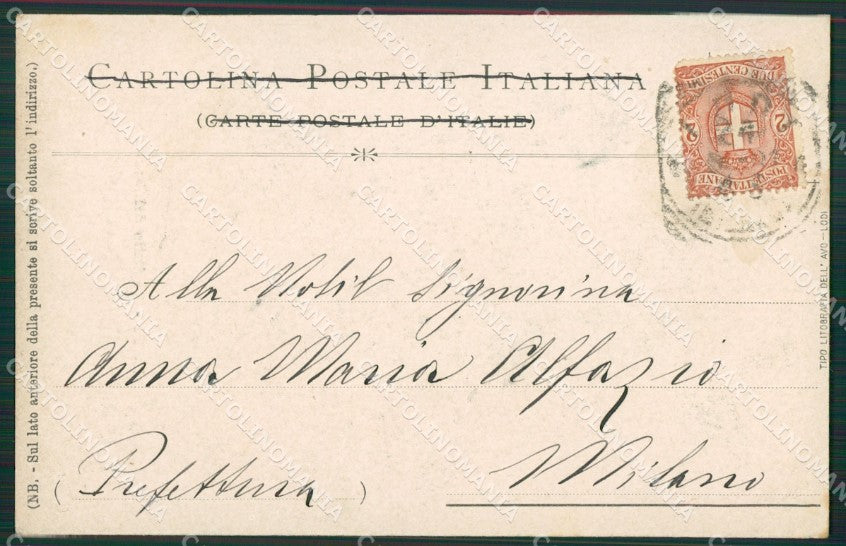 CARTOLINA POSTALE ITALIANA
(CARTE POSTALE D'ITALIE)
DUE CENTESIMI
2 2
POSTE ITALIANE
Alla Nobil Signorina
Anna Maria Alfazio
(Prefettura)
Milano
(NB. - Sul lato anteriore della presente si scrive soltanto l'indirizzo.)
TIPO LITOGRAFIA DELL'AVO - LODI
CARTOLINOMANIA